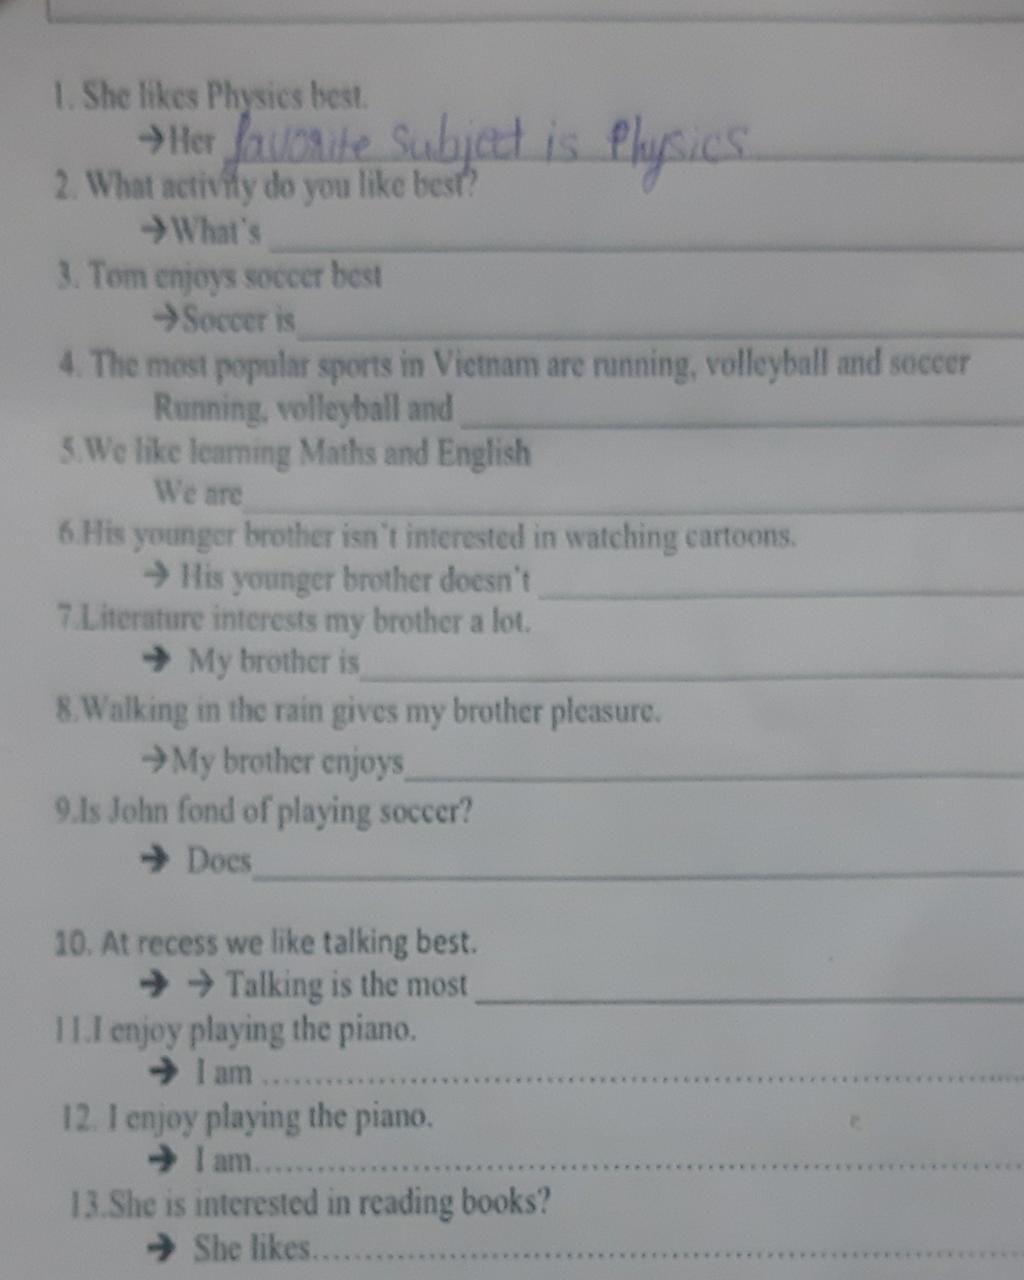 1. She likes Physics best.
→Her favorite subject is Physics
2. What activity do you like best?
→What's
3. Tom enjoys soccer best
→Soccer is
4. The most popular sports in Vietnam are running, volleyball and soccer
Running, volleyball and
5.We like learning Maths and English
We are
6.His younger brother isn't interested in watching cartoons.
→ His younger brother doesn't
7.Literature interests my brother a lot.
→ My brother is
8.Walking in the rain gives my brother pleasure.
→My brother enjoys
9.Is John fond of playing soccer?
→ Does
10. At recess we like talking best.
→ → Talking is the most
11.I enjoy playing the piano.
→ I am
12. I enjoy playing the piano.
→ I am
13.She is interested in reading books?
→ She likes